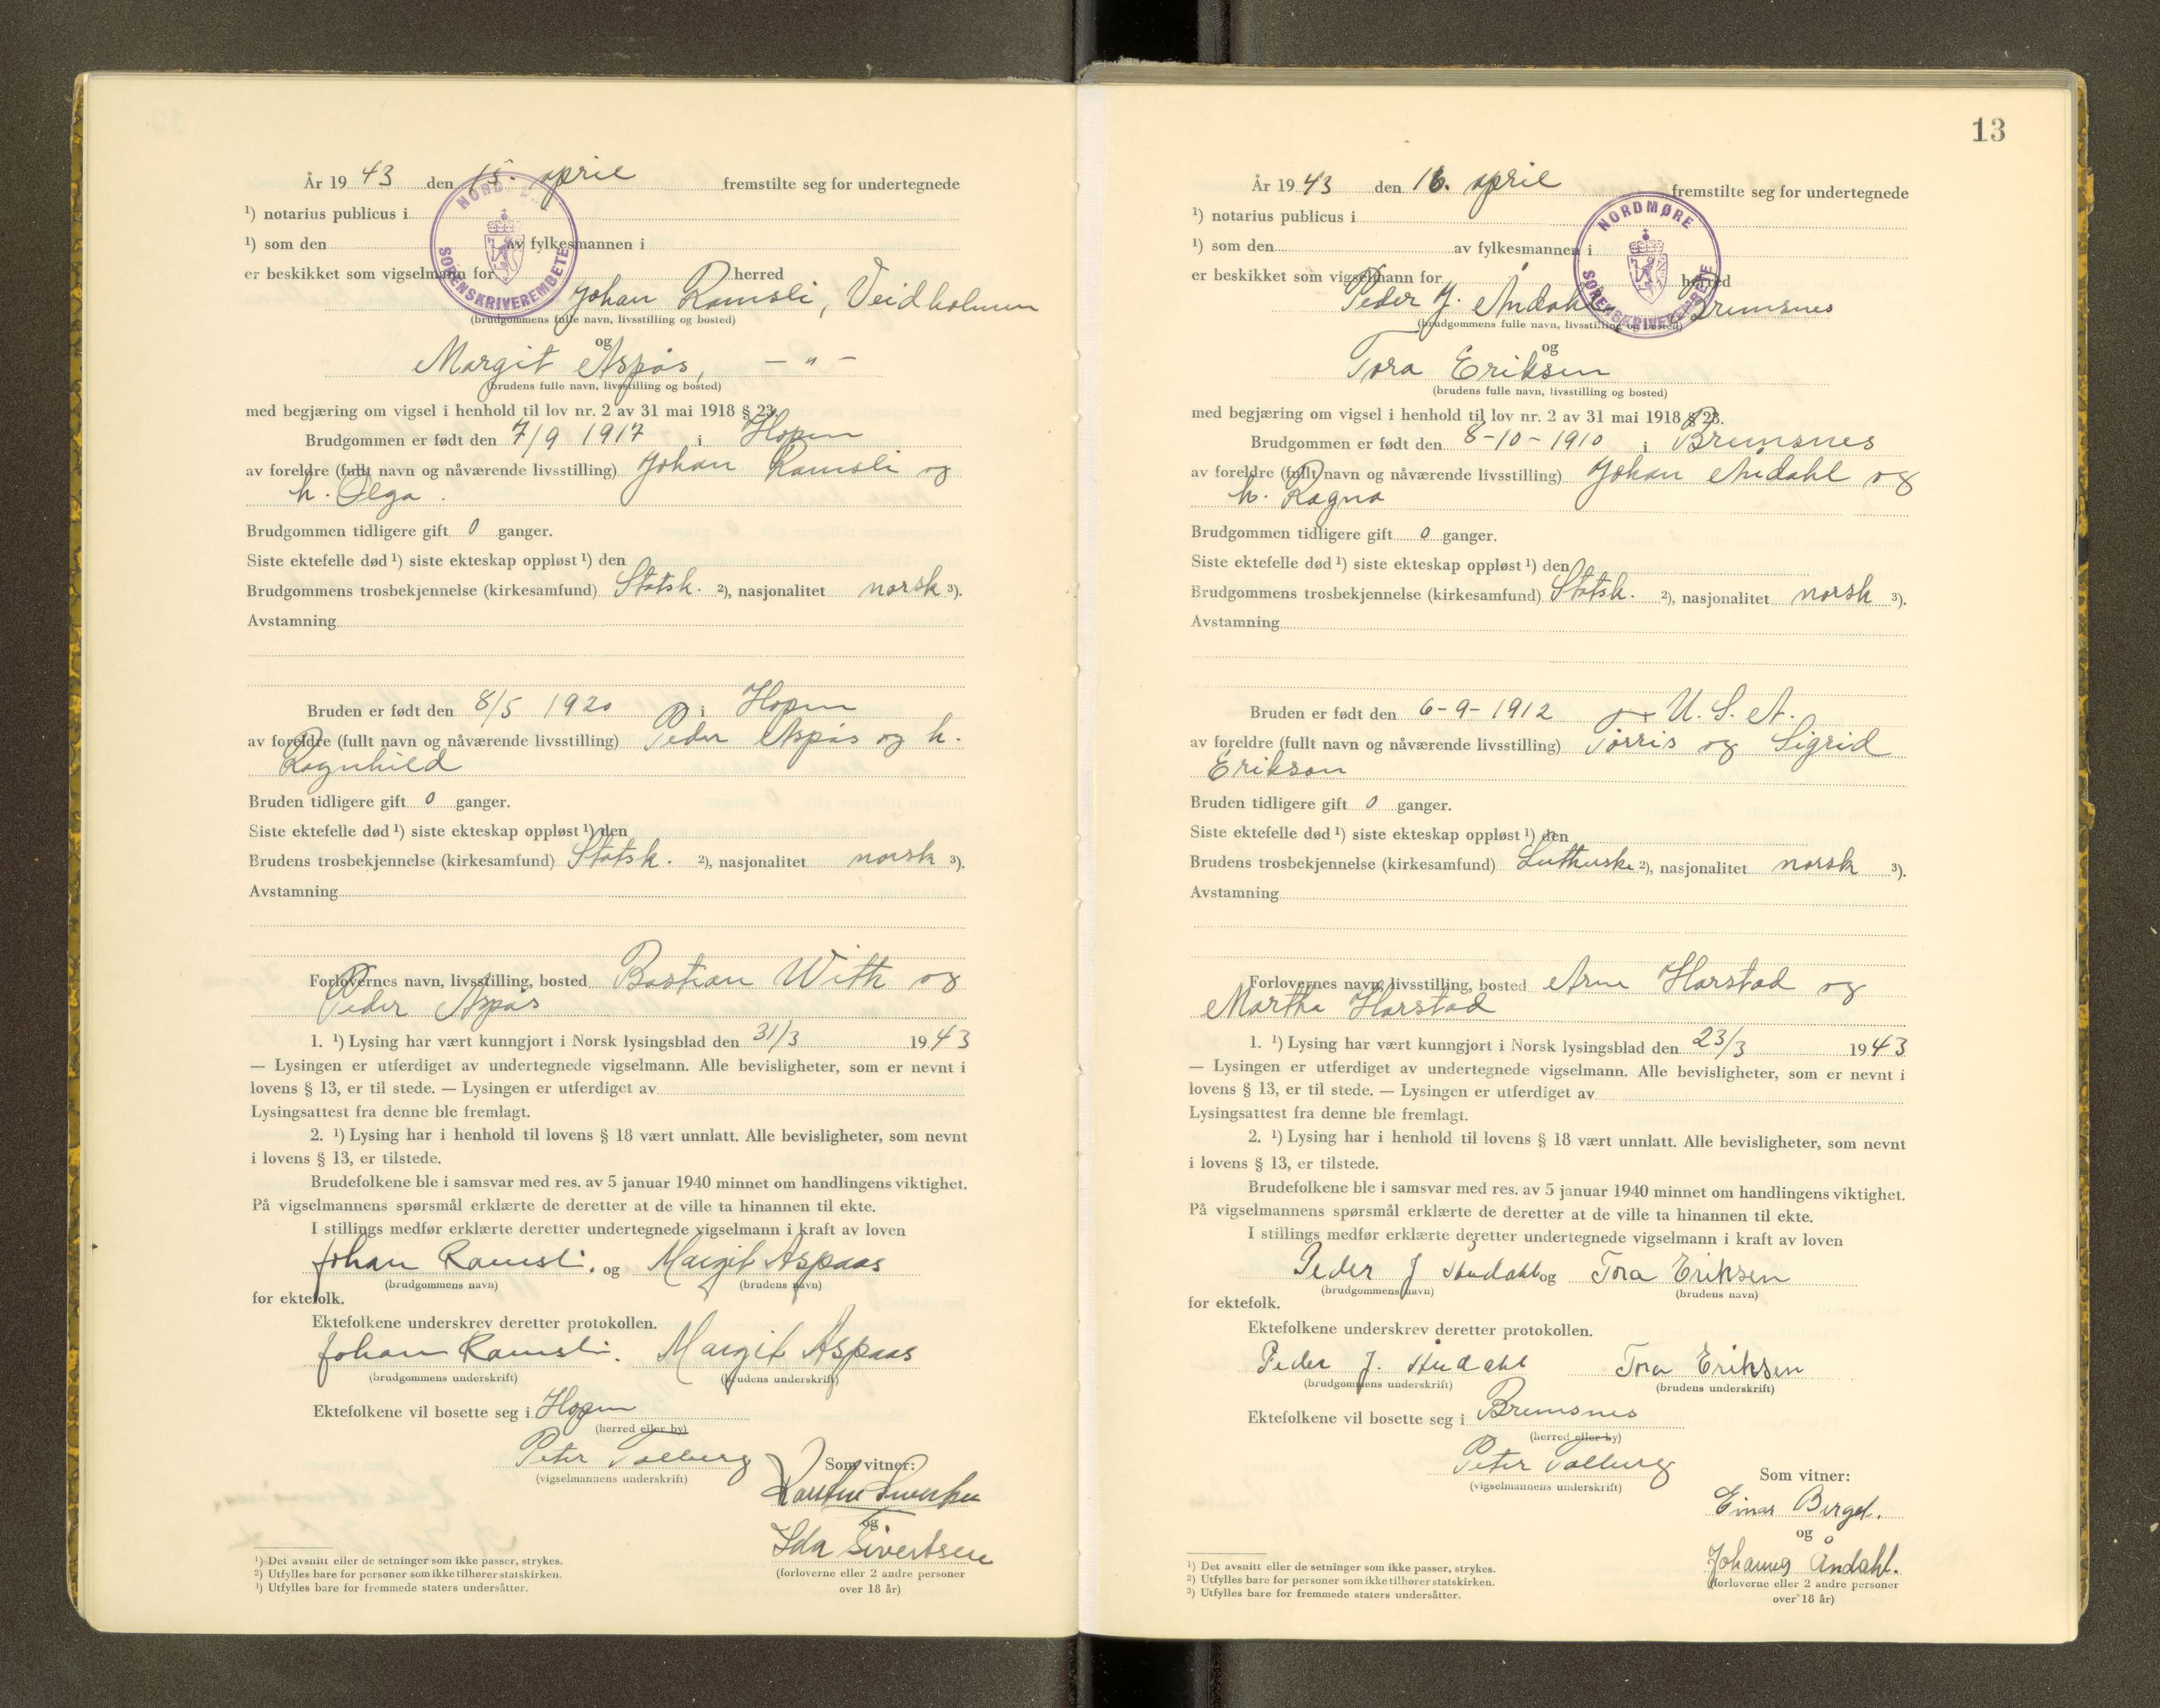 År 19 43 den 15. april fremstilte seg for undertegnede
¹) notarius publicus i
¹) som den av fylkesmannen i
er beskikket som vigselmann for herred
NORD
SORENSKRIVEREMBETE
Johan Ramsli, Veidholmen
(brudgommens fulle navn, livsstilling og bosted)
og
Margit Aspås, — " —
(brudens fulle navn, livsstilling og bosted)
med begjæring om vigsel i henhold til lov nr. 2 av 31 mai 1918 § 23.
Brudgommen er født den 7/9 1917 i Hopen
av foreldre (fullt navn og nåværende livsstilling) Johan Ramsli og
h. Olga.
Brudgommen tidligere gift 0 ganger.
Siste ektefelle død ¹) siste ekteskap oppløst ¹) den
Brudgommens trosbekjennelse (kirkesamfund) Statsk. ²), nasjonalitet norsk ³).
Avstamning
Bruden er født den 8/5 1920 i Hopen
av foreldre (fullt navn og nåværende livsstilling) Peder Aspås og h.
Ragnhild
Bruden tidligere gift 0 ganger.
Siste ektefelle død ¹) siste ekteskap oppløst ¹) den
Brudens trosbekjennelse (kirkesamfund) Statsk. ²), nasjonalitet norsk ³).
Avstamning
Forlovernes navn, livsstilling, bosted Bastian With og
Peder Aspås
1. ¹) Lysing har vært kunngjort i Norsk lysingsblad den 31/3 19 43
— Lysingen er utferdiget av undertegnede vigselmann. Alle bevisligheter, som er nevnt i
lovens § 13, er til stede. — Lysingen er utferdiget av
Lysingsattest fra denne ble fremlagt.
2. ¹) Lysing har i henhold til lovens § 18 vært unnlatt. Alle bevisligheter, som nevnt
i lovens § 13, er tilstede.
Brudefolkene ble i samsvar med res. av 5 januar 1940 minnet om handlingens viktighet.
På vigselmannens spørsmål erklærte de deretter at de ville ta hinannen til ekte.
I stillings medfør erklærte deretter undertegnede vigselmann i kraft av loven
Johan Ramsli. og Margit Aspaas
(brudgommens navn) (brudens navn)
for ektefolk.
Ektefolkene underskrev deretter protokollen.
Johan Ramsli. Margit Aspaas
(brudgommens underskrift) (brudens underskrift)
Ektefolkene vil bosette seg i Hopen
(herred eller by)
Peter Solberg
(vigselmannens underskrift)
Som vitner:
Karsten
og
Ida Sivertsen
(forloverne eller 2 andre personer
over 18 år)
¹) Det avsnitt eller de setninger som ikke passer, strykes.
²) Utfylles bare for personer som ikke tilhører statskirken.
³) Utfylles bare for fremmede staters undersåtter.
13
År 19 43 den 16. april fremstilte seg for undertegnede
¹) notarius publicus i
¹) som den av fylkesmannen i
er beskikket som vigselmann for herred
NORDMØRE
SORENSKRIVEREMBETE
Peder J. Åndahl Bremsnes
(brudgommens fulle navn, livsstilling og bosted)
og
Tora Eriksen
(brudens fulle navn, livsstilling og bosted)
med begjæring om vigsel i henhold til lov nr. 2 av 31 mai 1918 § 23.
Brudgommen er født den 8-10-1910 i Bremsnes
av foreldre (fullt navn og nåværende livsstilling) Johan Åndahl og
h. Ragna
Brudgommen tidligere gift 0 ganger.
Siste ektefelle død ¹) siste ekteskap oppløst ¹) den
Brudgommens trosbekjennelse (kirkesamfund) Statsk. ²), nasjonalitet norsk ³).
Avstamning
Bruden er født den 6-9-1912 U. S. A.
av foreldre (fullt navn og nåværende livsstilling) Torris og Sigrid
Erikson
Bruden tidligere gift 0 ganger.
Siste ektefelle død ¹) siste ekteskap oppløst ¹) den
Brudens trosbekjennelse (kirkesamfund) Lutherske ²), nasjonalitet norsk ³).
Avstamning
Forlovernes navn, livsstilling, bosted Arne Harstad og
Martha Harstad
1. ¹) Lysing har vært kunngjort i Norsk lysingsblad den 23/3 19 43
— Lysingen er utferdiget av undertegnede vigselmann. Alle bevisligheter, som er nevnt i
lovens § 13, er til stede. — Lysingen er utferdiget av
Lysingsattest fra denne ble fremlagt.
2. ¹) Lysing har i henhold til lovens § 18 vært unnlatt. Alle bevisligheter, som nevnt
i lovens § 13, er tilstede.
Brudefolkene ble i samsvar med res. av 5 januar 1940 minnet om handlingens viktighet.
På vigselmannens spørsmål erklærte de deretter at de ville ta hinannen til ekte.
I stillings medfør erklærte deretter undertegnede vigselmann i kraft av loven
Peder J Åndahl og Tora Eriksen
(brudgommens navn) (brudens navn)
for ektefolk.
Ektefolkene underskrev deretter protokollen.
Peder J. Åndahl Tora Eriksen
(brudgommens underskrift) (brudens underskrift)
Ektefolkene vil bosette seg i Bremsnes
(herred eller by)
Peter Solberg
(vigselmannens underskrift)
Som vitner:
Einar Berget.
og
Johannes Åndahl.
(forloverne eller 2 andre personer
over 18 år)
¹) Det avsnitt eller de setninger som ikke passer, strykes.
²) Utfylles bare for personer som ikke tilhører statskirken.
³) Utfylles bare for fremmede staters undersåtter.